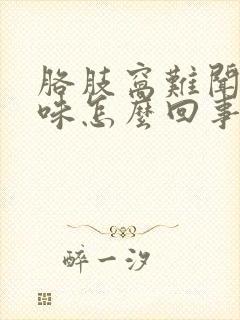 胳肢窩難聞
味怎麼回事
醉一汐